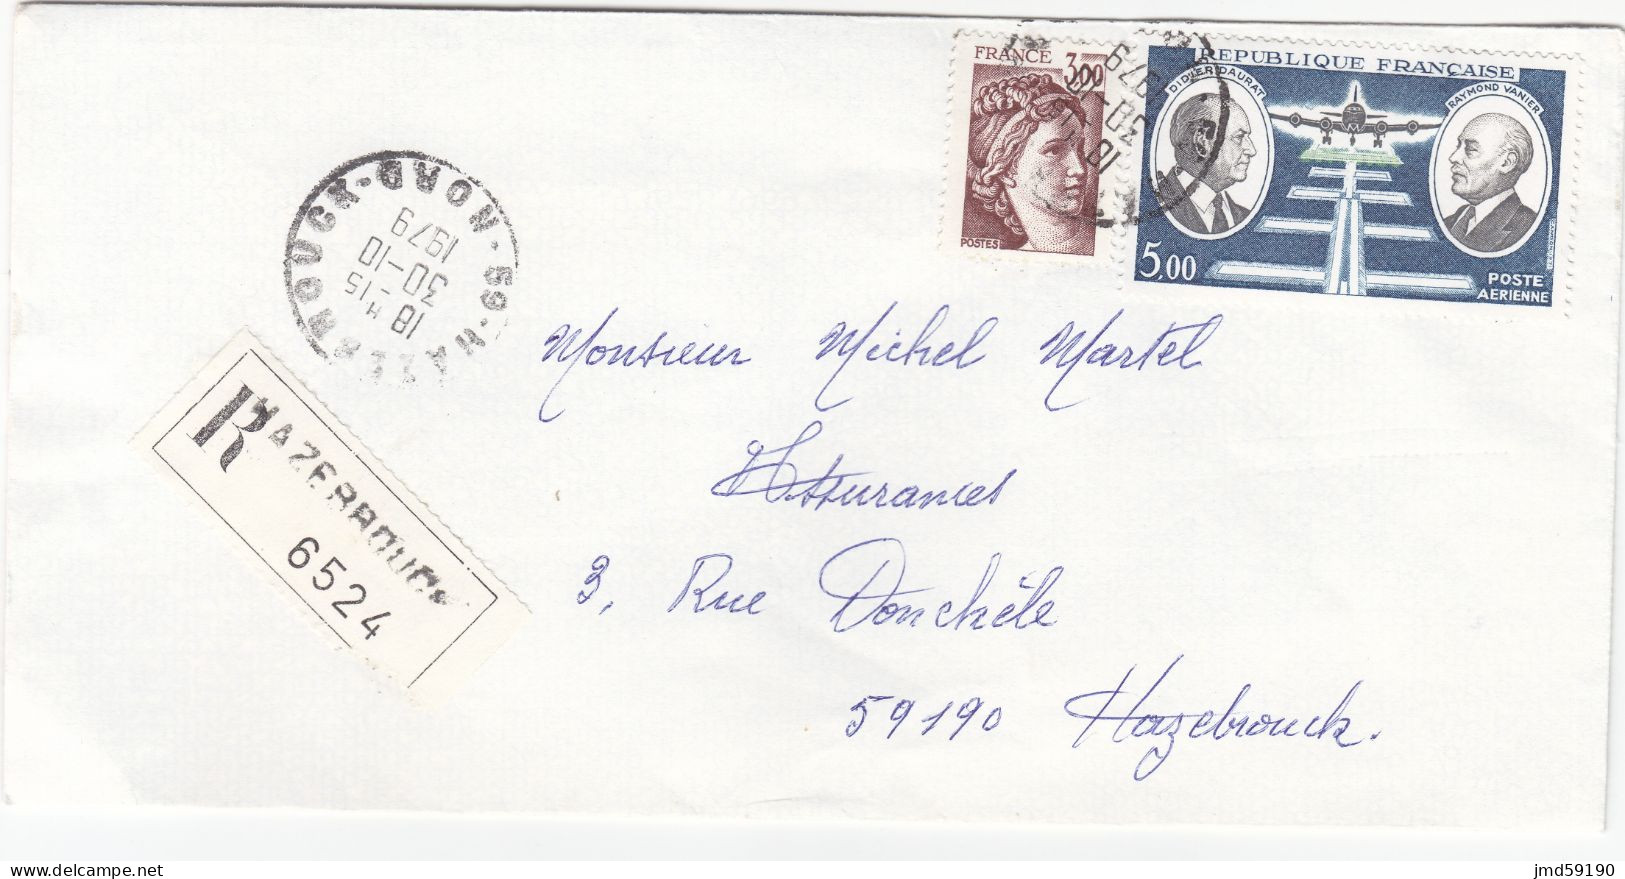 FRANCE
3,00
POSTES
REPUBLIQUE FRANÇAISE
DIDIER DAURAT
RAYMOND VANIER
5,00
POSTE
AÉRIENNE
HAZEBROUCK-NORD-59
18 H-15
30-10
1979
R HAZEBROUCK
6524
Monsieur Michel Martel
Assurances
3, Rue Donckèle
59190 Hazebrouck.
jmd59190